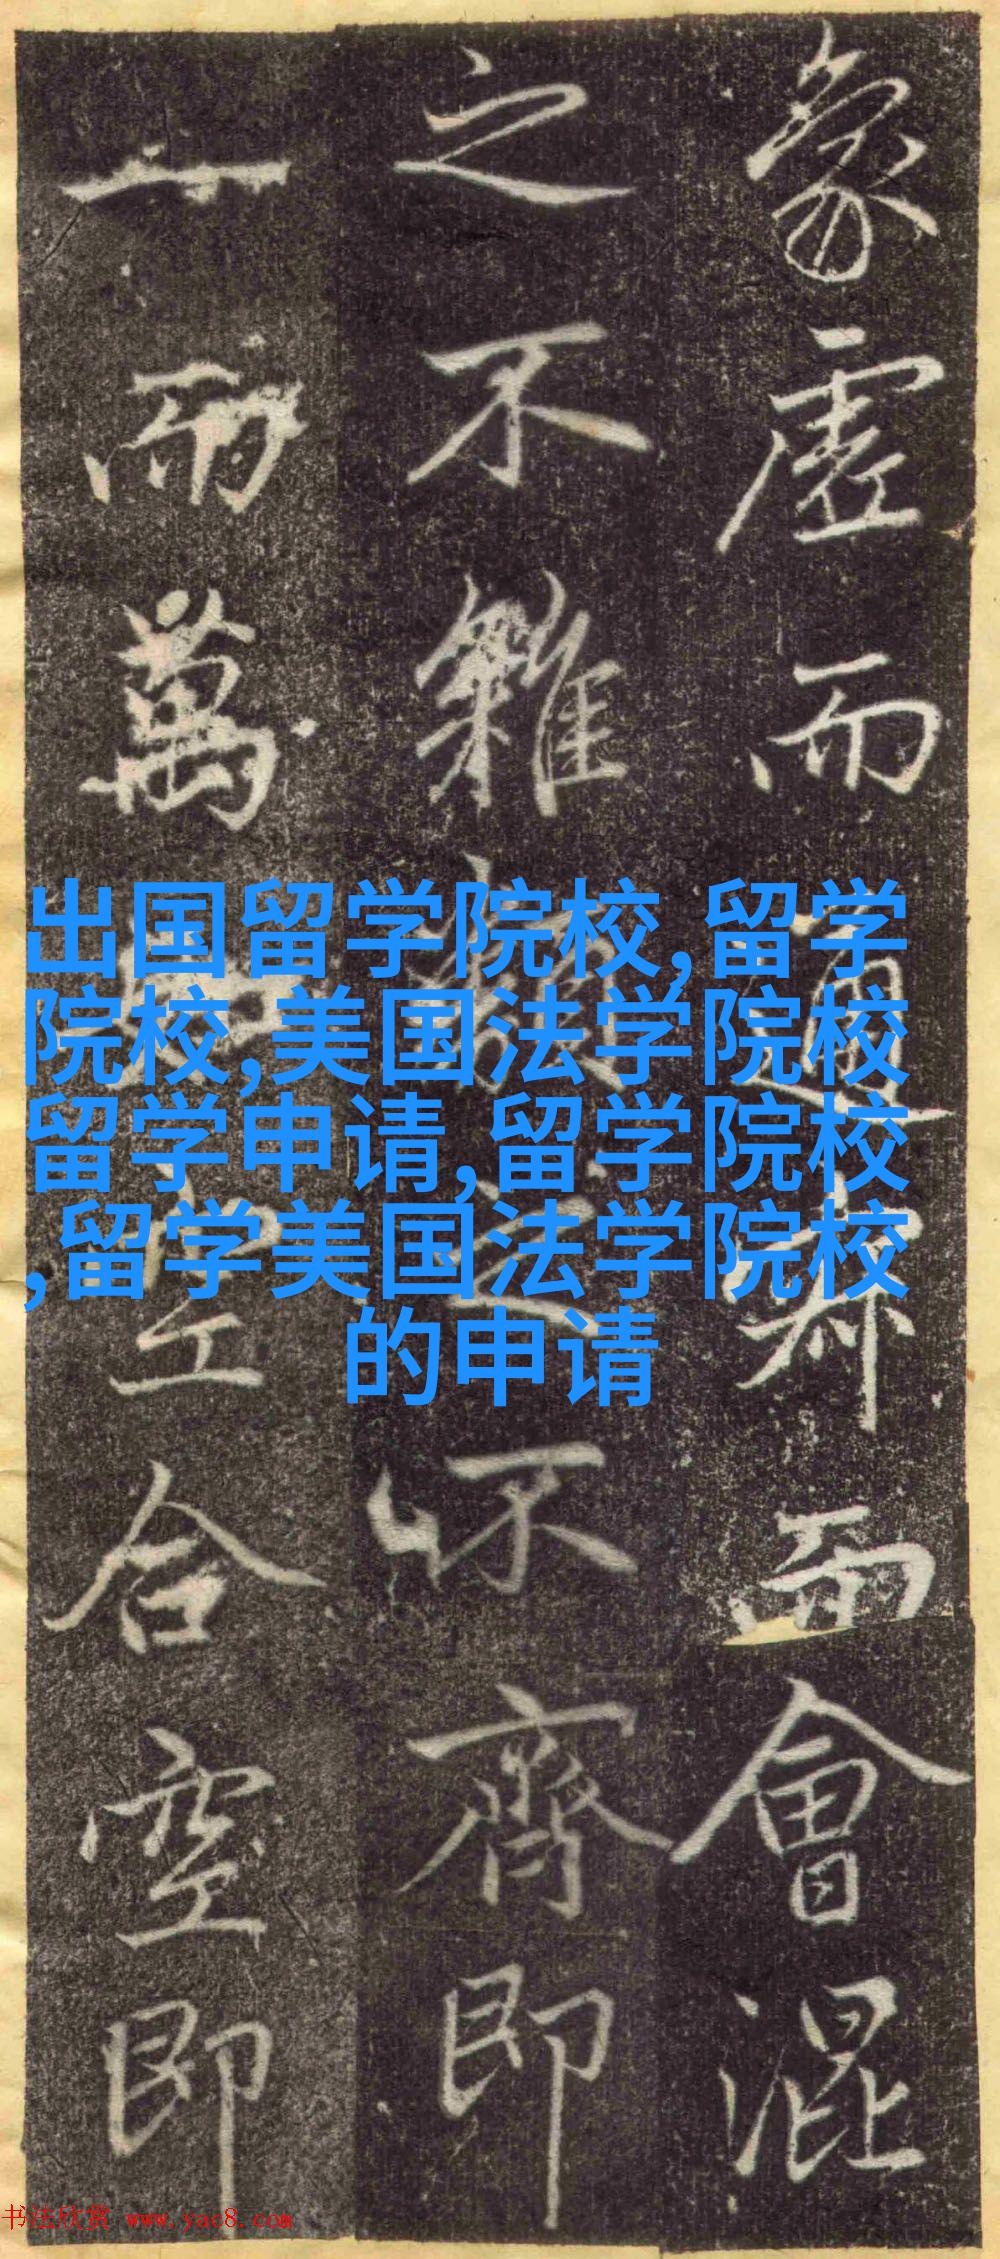 象虛而通而會混
之不雜之不齊即
一而萬合空即
出国留学院校,留学
院校,美国法学院校
留学申请,留学院校
,留学美国法学院校
的申请
书法欣赏 www.yac8.com